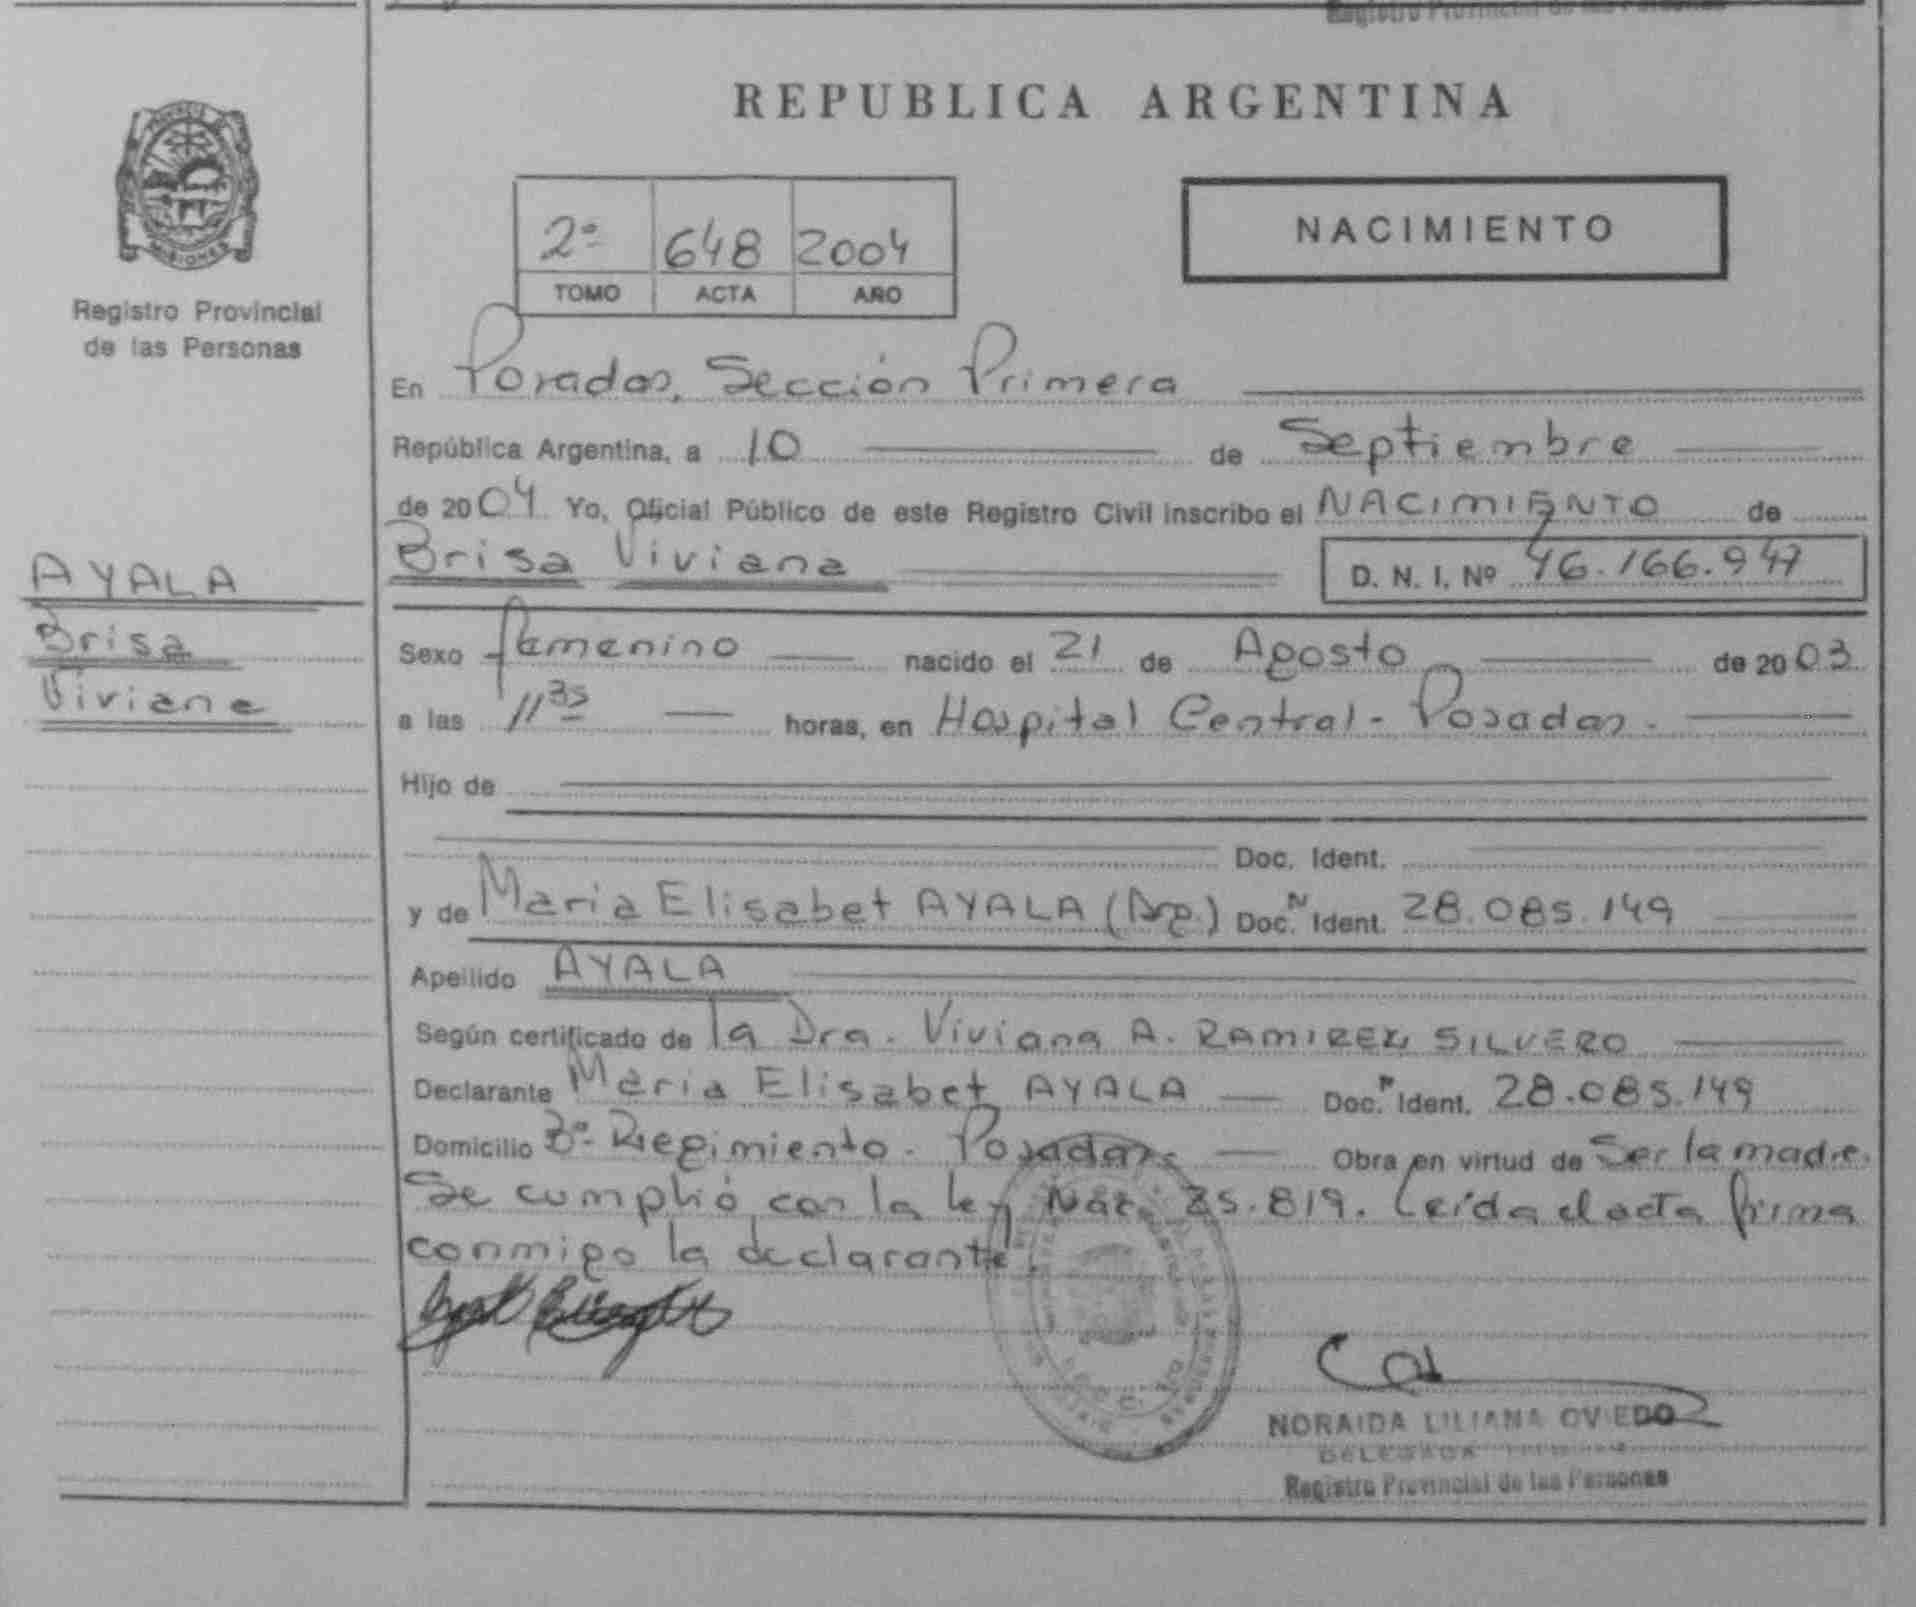 Registro Provincial de las Personas
REPUBLICA ARGENTINA
NACIMIENTO
2º 648 2004
TOMO ACTA AÑO
PROVINCIA DE
MISIONES
Registro Provincial
de las Personas
En Posadas, Sección Primera
República Argentina, a 10 de Septiembre
de 2004 Yo, Oficial Público de este Registro Civil inscribo el NACIMIENTO de
Brisa Viviana D. N. I. Nº 46.166.947
AYALA
Brisa
Viviana
Sexo femenino nacido el 21 de Agosto de 2003
a las 11 35 horas, en Hospital Central - Posadas.
Hijo de
Doc. Ident.
y de Maria Elisabet AYALA (Arg.) Doc. N Ident. 28.085.149
Apellido AYALA
Según certificado de la Dra. Viviana A. RAMIREZ SILVERO
Declarante Maria Elisabet AYALA Doc. Ident. 28.085.149
Domicilio 3º Regimiento. Posadas Obra en virtud de Ser la madre.
Se cumplió con la ley Nac. 25.819. Leída el acta firma
conmigo la declarante.
NORAIDA LILIANA OVIEDO
DELEGADA
Registro Provincial de las Personas